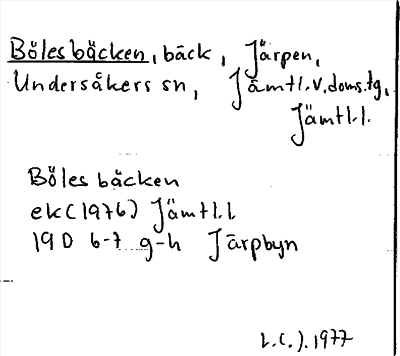 Bölesbäcken, bäck, Järpen,
Undersåkers sn, Jämtl.v.doms.tg,
Jämtl.l.
Böles bäcken
ek (1976) Jämtl.l
19D 6-7 g-h Järpbyn
L.C.J. 1977